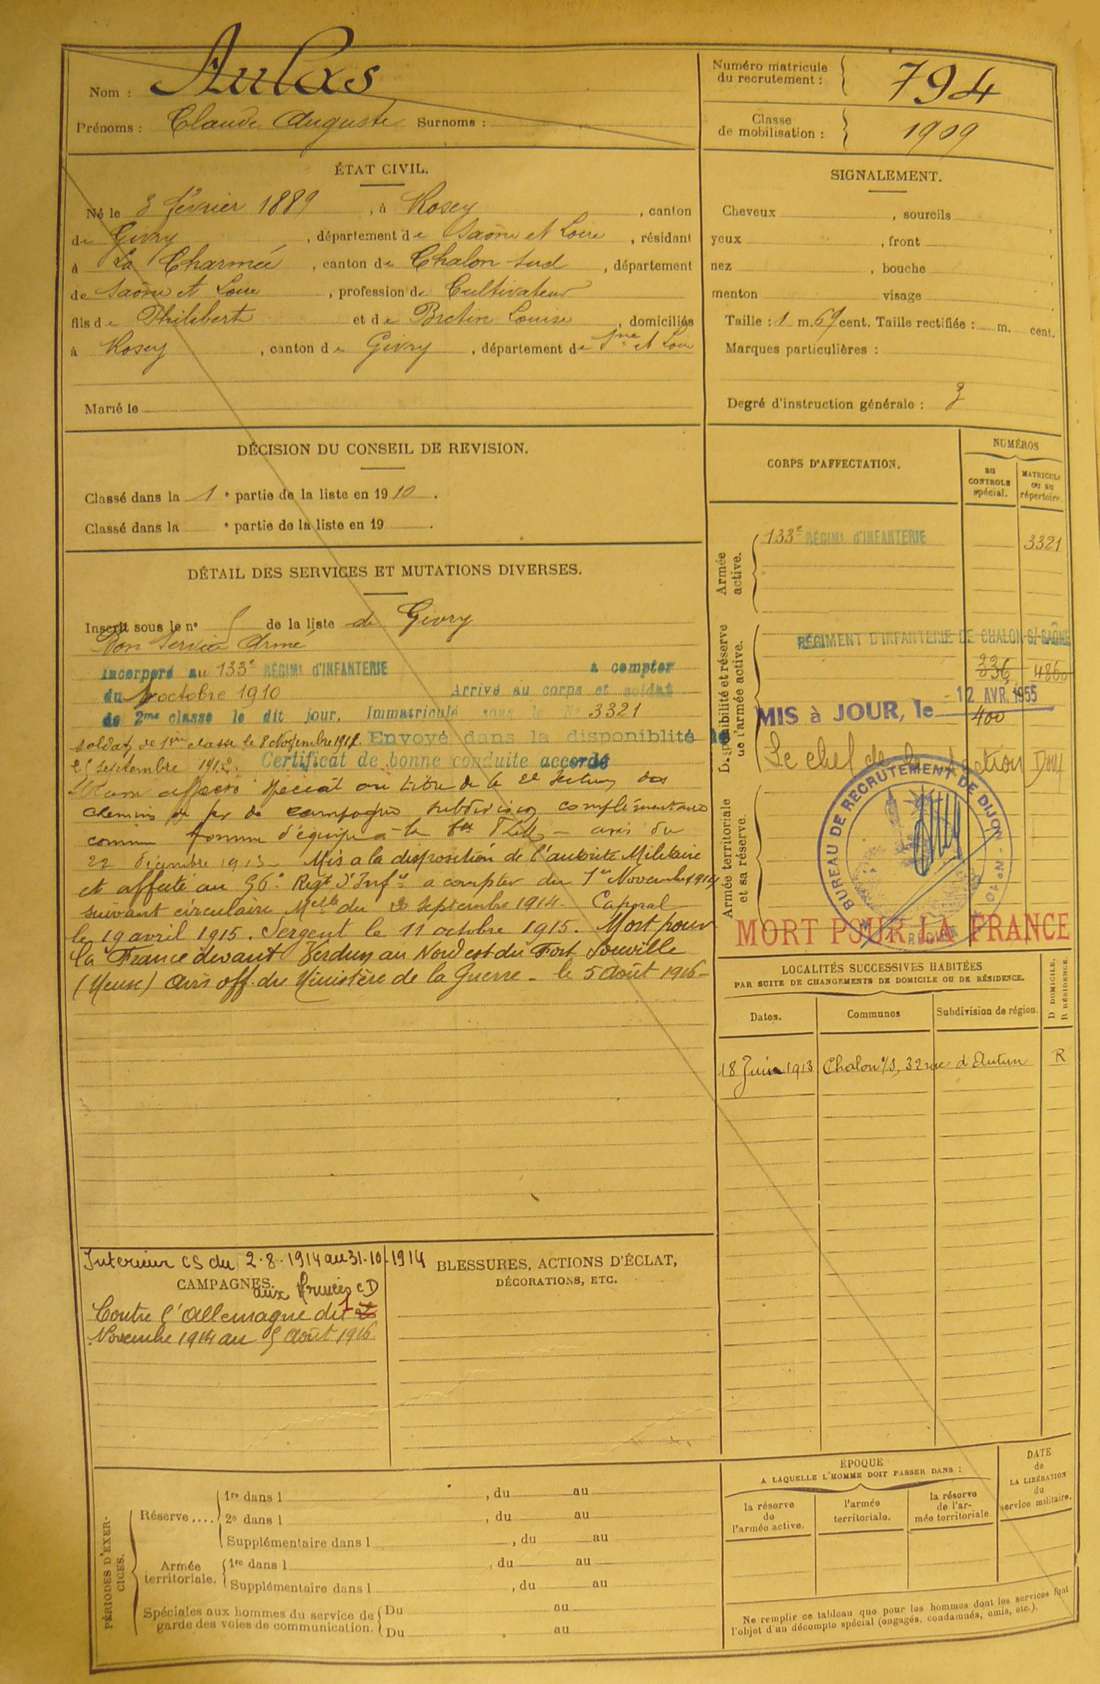 Nom : Aulas
Prénoms : Claude Auguste Surnoms :
Numéro matricule
du recrutement : 794
Classe
de mobilisation : 1909
ÉTAT CIVIL.
Né le 3 février 1889, à Rosey, canton
de Givry, département de Saône et Loire, résidant
à La Charmée, canton de Chalon Sud, département
de Saône et Loire, profession de Cultivateur
fils de Philibert et de Bretin Louise, domiciliés
à Rosey, canton de Givry, département de Sne et Loire
Marié le
SIGNALEMENT.
Cheveux , sourcils
yeux , front
nez , bouche
menton visage
Taille : 1 m. 69 cent. Taille rectifiée : m. cent.
Marques particulières :
Degré d'instruction générale : 3
DÉCISION DU CONSEIL DE REVISION.
Classé dans la 1e partie de la liste en 1910.
Classé dans la e partie de la liste en 19 .
DÉTAIL DES SERVICES ET MUTATIONS DIVERSES.
Inscrit sous le n° 5 de la liste de Givry
Bon Service Armé
Incorporé au 133e RÉGIMt d'INFANTERIE à compter
du 1 octobre 1910 Arrivé au corps et soldat
de 2me classe le dit jour. Immatriculé sous le No 3321
Soldat de 1ère classe le 8 Novembre 1911. Envoyé dans la disponiblité le
25 septembre 1912. Certificat de bonne conduite accordé
affecté spécial au titre de la 2e Section des
chemins de fer de campagne subdivision complémentaire
comme homme d'équipe à la avis du
22 décembre 1913 - Mis à la disposition de l'autorité Militaire
et affecté au 56e Régt d'Infie à compter du 1er Novembre 1914
suivant circulaire Melle du septembre 1914. Caporal
le 19 avril 1915. Sergent le 11 octobre 1915. Mort pour
la France devant Verdun au Nord est du Fort Souville
(Meuse) Avis off. du Ministère de la Guerre - le 5 Août 1916 -
CORPS D'AFFECTATION.
NUMÉROS
AU
CONTROLE
spécial.
MATRICULE
OU AU
répertoire.
Armée
active.
133e RÉGIMt d'INFANTERIE 3321
Disponibilité et réserve
de l'armée active.
RÉGIMENT D'INFANTERIE DE CHALON-S/-SAÔNE
236 4860
400
MIS à JOUR, le 12 AVR. 1955
Le chef de la section
BUREAU DE RECRUTEMENT DE DIJON
RÉGION
Armée territoriale
et sa réserve.
MORT POUR LA FRANCE
LOCALITÉS SUCCESSIVES HABITÉES
PAR SUITE DE CHANGEMENTS DE DOMICILE OU DE RÉSIDENCE.
D DOMICILE.
R RÉSIDENCE.
Dates. Communes Subdivision de région.
18 Juin 1913 Chalon s/S, 32 rue d'Autun R
Intérieur CS du 2.8.1914 au 31.10.1914
CAMPAGNES.
aux Armées CD
Contre l'Allemagne du 1
Novembre 1914 au 5 Août 1916.
BLESSURES, ACTIONS D'ÉCLAT,
DÉCORATIONS, ETC.
PÉRIODES D'EXER-
CICES.
Réserve ....
1re dans l , du au
2e dans l , du au
Supplémentaire dans l , du au
Armée
territoriale.
1re dans l , du au
Supplémentaire dans l , du au
Spéciales aux hommes du service de
garde des voies de communication.
Du au
Du au
ÉPOQUE
A LAQUELLE L'HOMME DOIT PASSER DANS :
la réserve
de
l'armée active.
l'armée
territoriale.
la réserve
de l'ar-
mée territoriale.
DATE
de
LA LIBÉRATION
du
service militaire.
Ne remplir ce tableau que pour les hommes dont les services font
l'objet d'un décompte spécial (engagés, condamnés, omis, etc.).